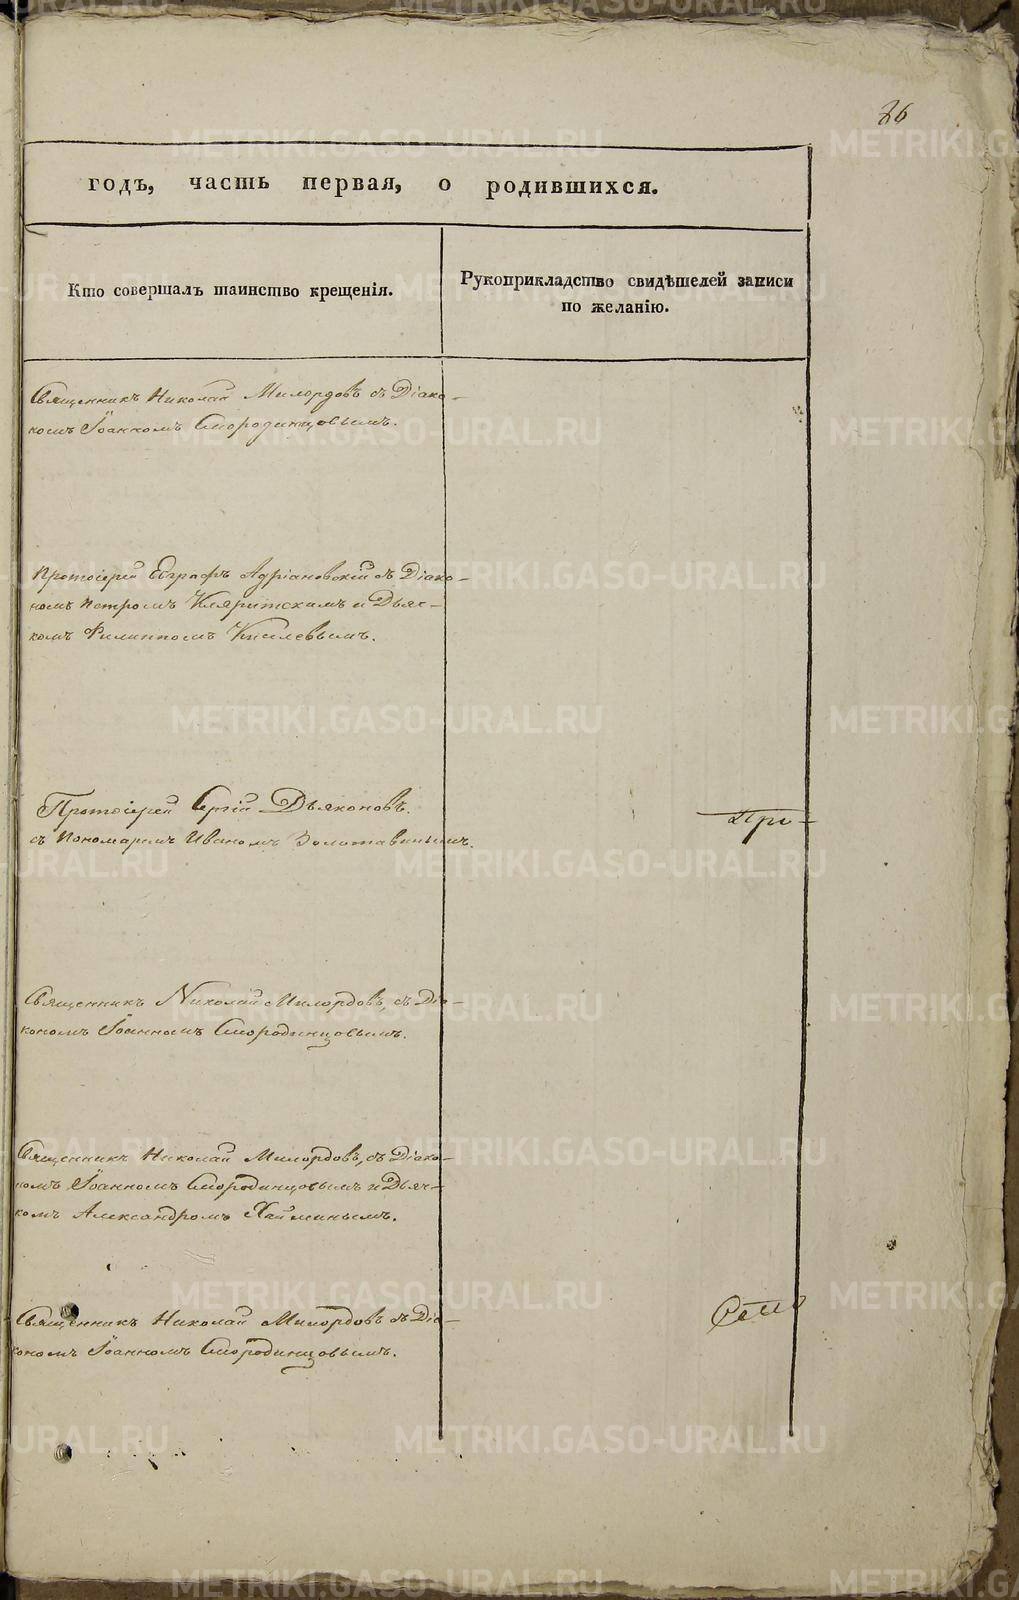 86
годъ, часть первая, о родившихся.
Кто совершалъ таинство крещенія.
Рукоприкладство свидѣтелей записи
по желанію.
Священникъ Николай Милордовъ съ Діако-
номъ Іоанномъ Смородинцовымъ.
Протоіерей Евграфъ Адріановскій съ Діако-
номъ Петромъ Кляритскимъ и Дьяч-
комъ Филиппомъ Киселевымъ.
Протоіерей Сергій Дьяконовъ.
съ Пономаремъ Иваномъ Золотавинымъ.
При-
Священникъ Николай Милордовъ, съ Діа-
кономъ Іоанномъ Смородинцовымъ.
Священникъ Николай Милордовъ, съ Діако-
номъ Іоанномъ Смородинцовымъ и Дьяч-
комъ Александромъ Хайминымъ.
Священникъ Николай Милордовъ съ Діа-
кономъ Іоанномъ Смородинцовымъ.
METRIKI.GASO-URAL.RU